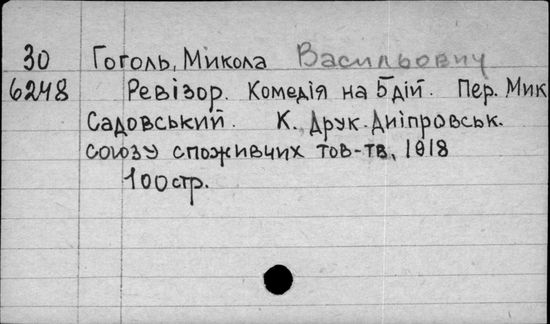 30 Гоголь, Микола Васильович
6248 Ревізор. Комедія на 5 дій. Пер. Мик
Садовський. К. Друк. Дніпровськ.
союзу споживчих тов-тв, 1918
100 стр.